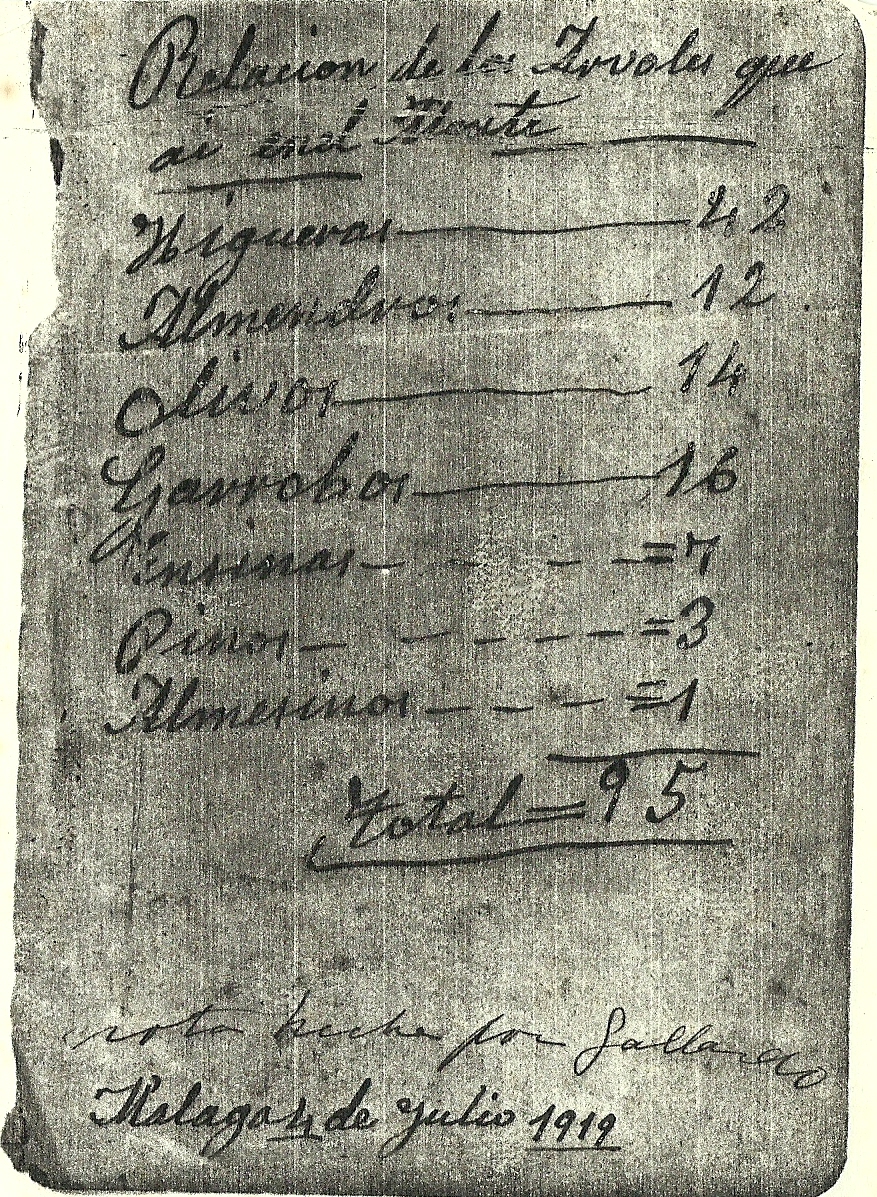 Relacion de los Arvoles que
ai enel Monte
Higueras 42
Almendros 12
Olivos 14
Garrobos 16
Ensinas =7
Pinos =3
Almesinos =1
Total=95
nota hecha por Gallardo
Malaga 4 de Julio 1919